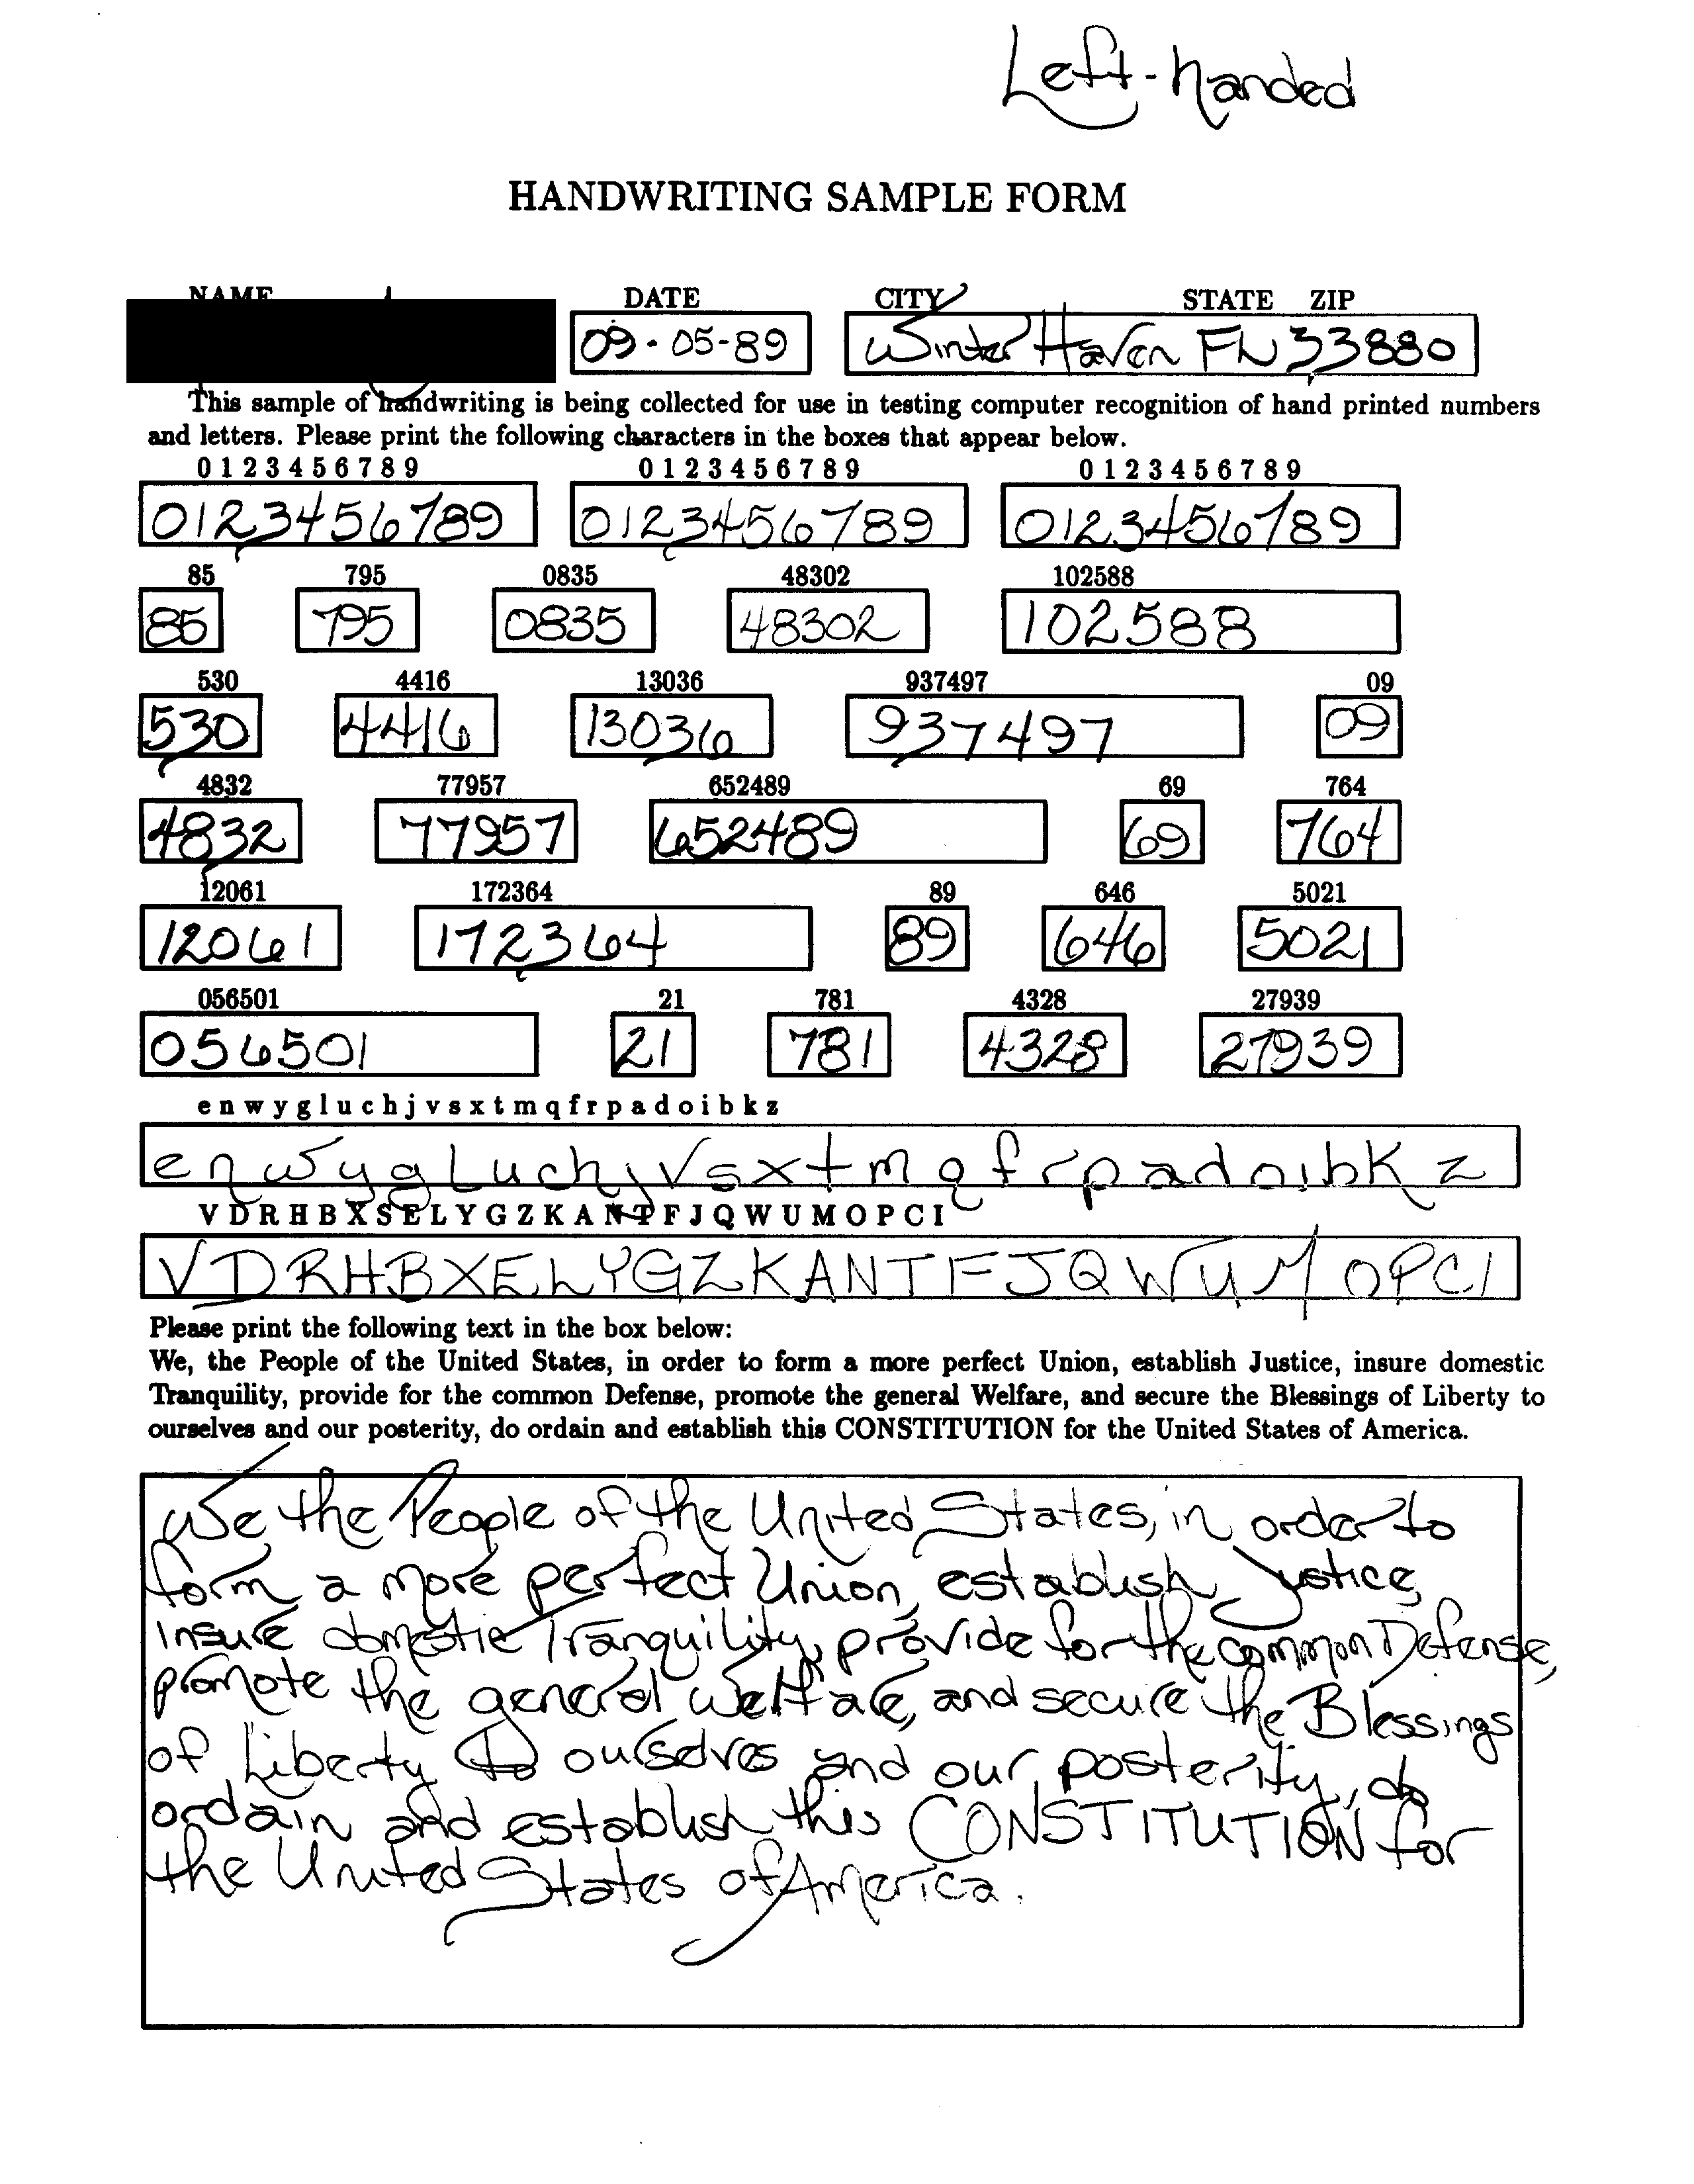 Left-handed
HANDWRITING SAMPLE FORM
NAME DATE CITY STATE ZIP
09-05-89 Winter Haven FL 33880
This sample of handwriting is being collected for use in testing computer recognition of hand printed numbers
and letters. Please print the following characters in the boxes that appear below.
0 1 2 3 4 5 6 7 8 9 0 1 2 3 4 5 6 7 8 9 0 1 2 3 4 5 6 7 8 9
0123456789 0123456789 0123456789
85 795 0835 48302 102588
85 795 0835 48302 102588
530 4416 13036 937497 09
530 4416 13036 937497 09
4832 77957 652489 69 764
4832 77957 652489 69 764
12061 172364 89 646 5021
12061 172364 89 646 5021
056501 21 781 4328 27939
056501 21 781 4328 27939
e n w y g l u c h j v s x t m q f r p a d o i b k z
e n w y g L u c h j v s x t m q f r p a d o i b K z
V D R H B X S E L Y G Z K A N T F J Q W U M O P C I
V D R H B X E L Y G Z K A N T F J Q W U M O P C I
Please print the following text in the box below:
We, the People of the United States, in order to form a more perfect Union, establish Justice, insure domestic
Tranquility, provide for the common Defense, promote the general Welfare, and secure the Blessings of Liberty to
ourselves and our posterity, do ordain and establish this CONSTITUTION for the United States of America.
We the People of the United States, in order to
form a more perfect Union, establish Justice,
insure domestic Tranquility, provide for the common Defense,
promote the general Welfare, and secure the Blessings
of Liberty to ourselves and our posterity, do
ordain and establish this CONSTITUTION for
the United States of America.